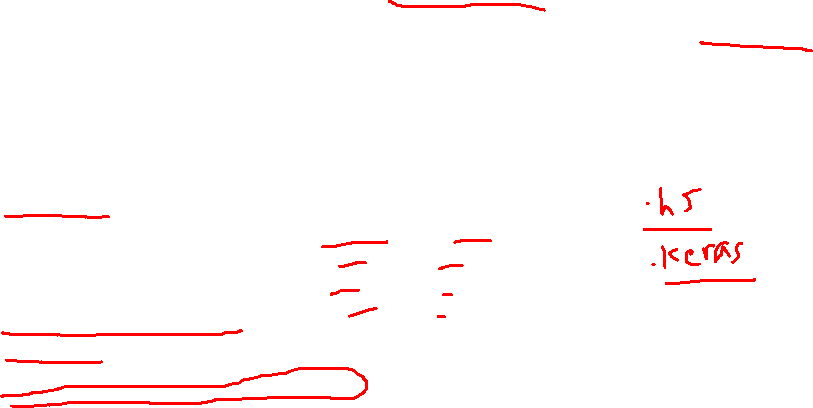 .h5
.keras